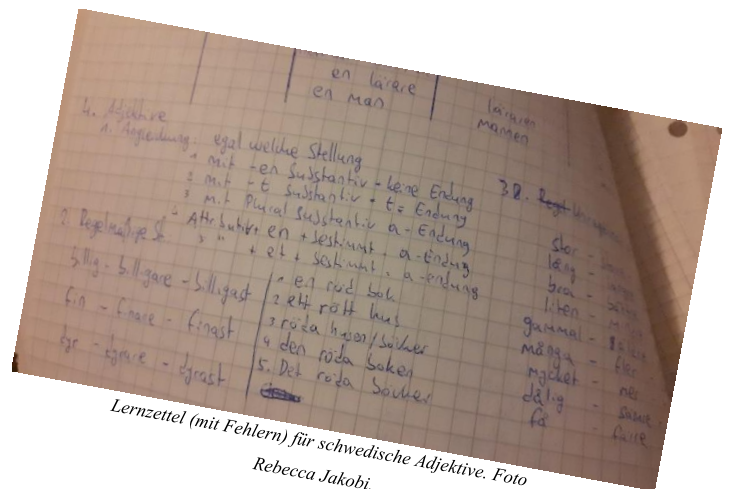 en lärare
en man
läraren
mannen
4. Adjektive
1. Angleichung: egal welche Stellung
1 mit -en Substantiv - keine Endung
2 mit - t Substantiv - t = Endung
3 mit Plural Substantiv a - Endung
4 Attributiv + en + bestimmt - a - Endung
5 " + et + bestimmt - a - endung
2. Regelmäßige
billig - billigare - billigast
fin - finare - finast
dyr - dyrare - dyrast
1 en röd bok
2 ett rött hus
3 röda husen/böcker
4 den röda boken
5. Det röda böcker
3
stor -
lång -
bra -
liten -
gammal -
många - fler
mycket - mer
dålig -
få -
Lernzettel (mit Fehlern) für schwedische Adjektive. Foto
Rebecca Jakobi.